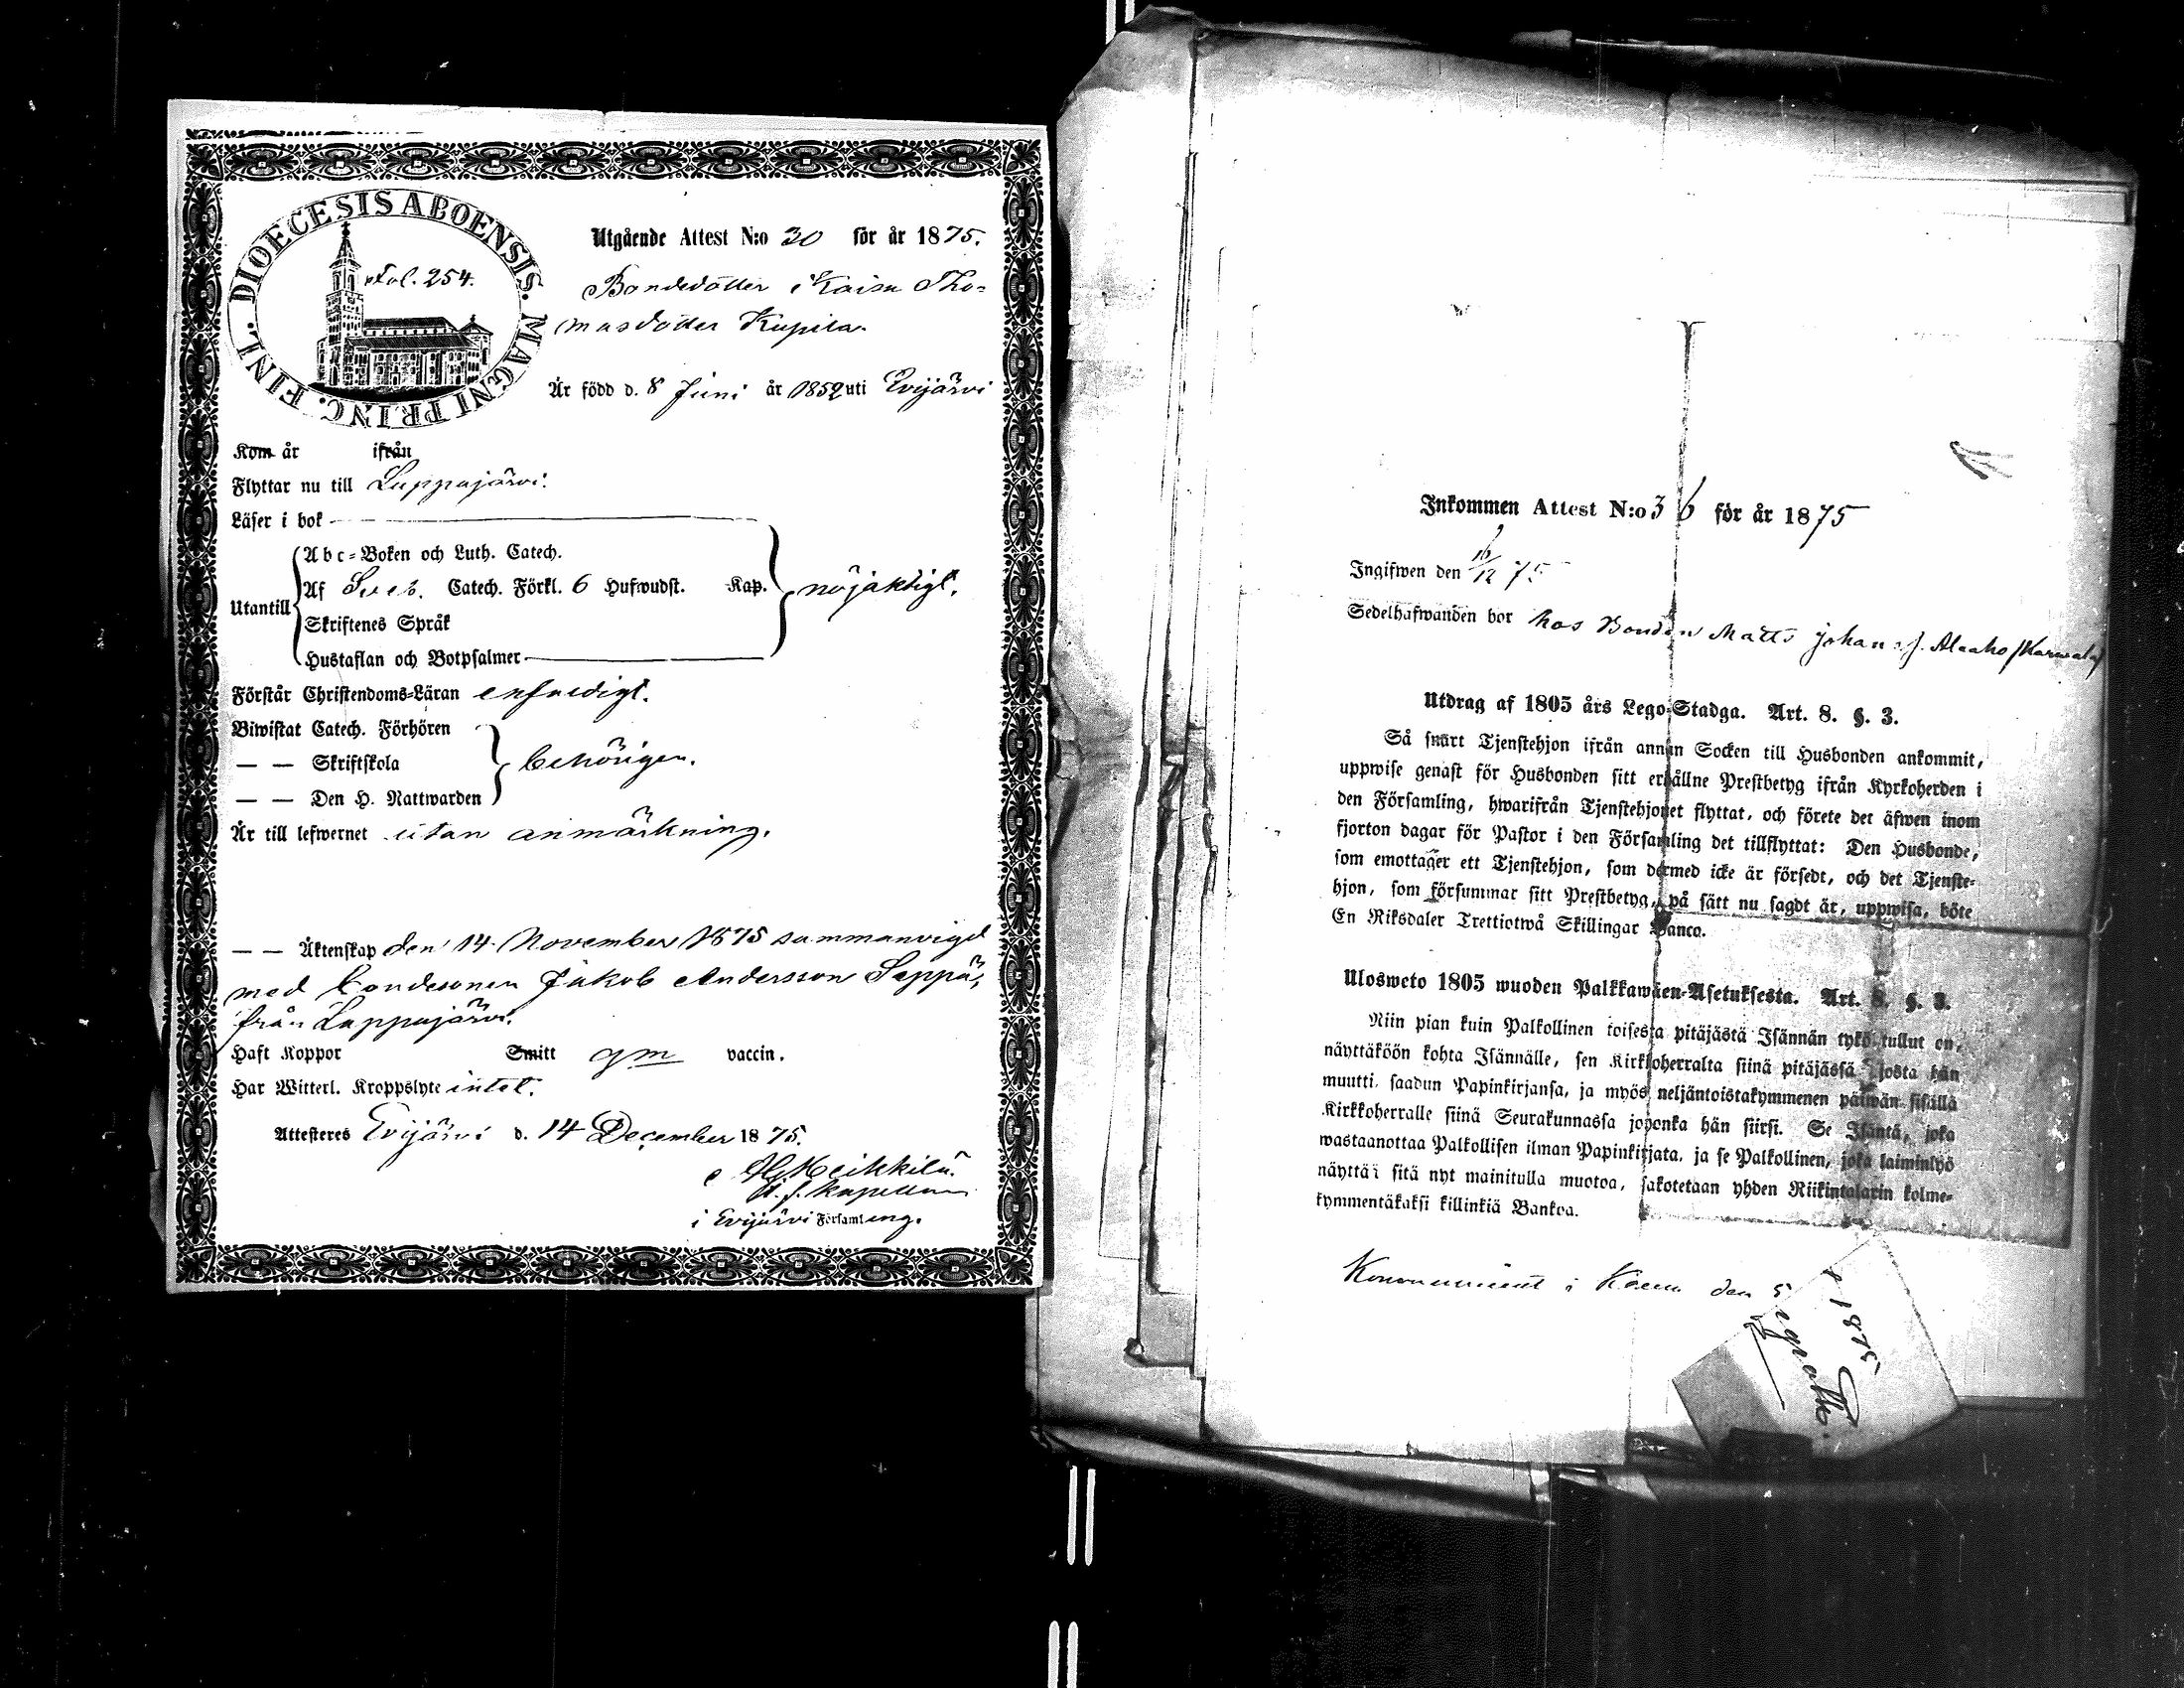 DIOECESIS ABOENSIS. MAGNI PRINC. FINL.
Fol. 254.
Utgående Attest N:o 30 för år 1875.
Bondedotter Kaisa Tho-
masdotter Kupila.
Är född d. 8 Juni år 1852 uti Evijärvi
Kom år ifrån
Flyttar nu till Lappajärvi.
Läser i bok
Utantill
Abc-Boken och Luth. Catech.
Af Sveb. Catech. Förkl. 6 Hufwudst. Kap.
nöjaktigt.
Skriftenes Språk
Hustaflan och Botpsalmer
Förstår Christendoms-Läran enfaldigt.
Biwistat Catech. Förhören
— — Skriftskola
behörigen.
— — Den H. Nattwarden
Är till lefwernet utan anmärkning.
— — Äktenskap den 14 November 1875 sammanvigd
med bondesonen Jakob Andersson Seppä,
från Lappajärvi.
Haft Koppor Smitt gm vaccin.
Har Witterl. Kroppslyte intet.
Attesteres Evijärvi d. 14 December 1875.
Heikkilä.
kapellan
i Evijärvi Församling.
Inkommen Attest N:o 36 för år 1875
Ingifwen den 16/12 75
Sedelhafwanden bor hos Bonden Matts Johans s. Alaaho / Karwala /
Utdrag af 1805 års Lego-Stadga. Art. 8. §. 3.
Så snart Tjenstehjon ifrån annan Socken till Husbonden ankommit,
uppwise genast för Husbonden sitt erhållne Prestbetyg ifrån Kyrkoherden i
den Församling, hwarifrån Tjenstehjonet flyttat, och förete det äfwen inom
fjorton dagar för Pastor i den Församling det tillflyttat: Den Husbonde,
som emottager ett Tjenstehjon, som dermed icke är försedt, och det Tjenste-
hjon, som försummar sitt Prestbetyg, på sätt nu sagdt är, uppwisa, böte
En Riksdaler Trettiotwå Skillingar Banco.
Ulosweto 1805 wuoden Palkkawäen-Asetuksesta. Art. 8. §. 3.
Niin pian kuin Palkollinen toisesta pitäjästä Isännän tykö tullut on,
näyttäköön kohta Isännälle, sen Kirkkoherralta siinä pitäjässä josta hän
muutti, saadun Papinkirjansa, ja myös neljäntoistakymmenen päiwän sisällä
Kirkkoherralle siinä Seurakunnassa johonka hän siirsi. Se Isäntä, joka
wastaanottaa Palkollisen ilman Papinkirjata, ja se Palkollinen, joka laiminlyö
näyttäi sitä nyt mainitulla muotoa, sakotetaan yhden Riikintalarin kolme-
kymmentäkaksi killinkiä Bankoa.
i den 5
1875